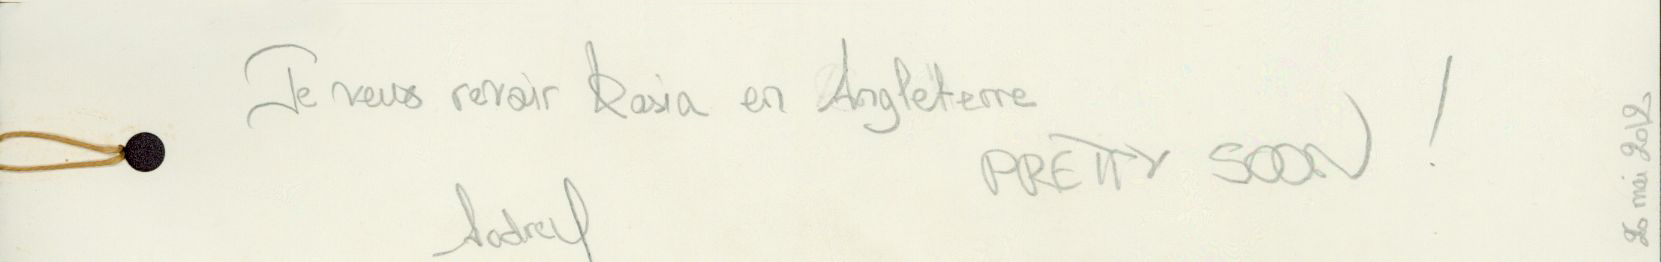 Je veux revoir Kasia en Angleterre
PRETTY SOON !
Audrey
26 mai 2012